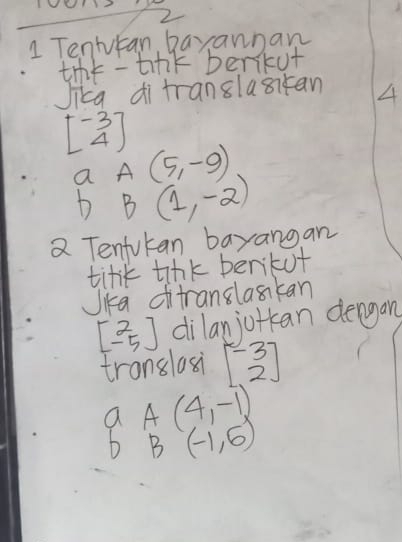 2
1 Tentukan bayannan
titik - titik berikut
Jika di translasikan
[-3
4]
a A (5,-9)
b B (1,-2)
2 Tentukan bayangan
titik titik berikut
Jika ditranslasikan
[2
-5] dilanjutkan dengan
translasi [-3
2]
a A (4,-1)
b B (-1,6)
4